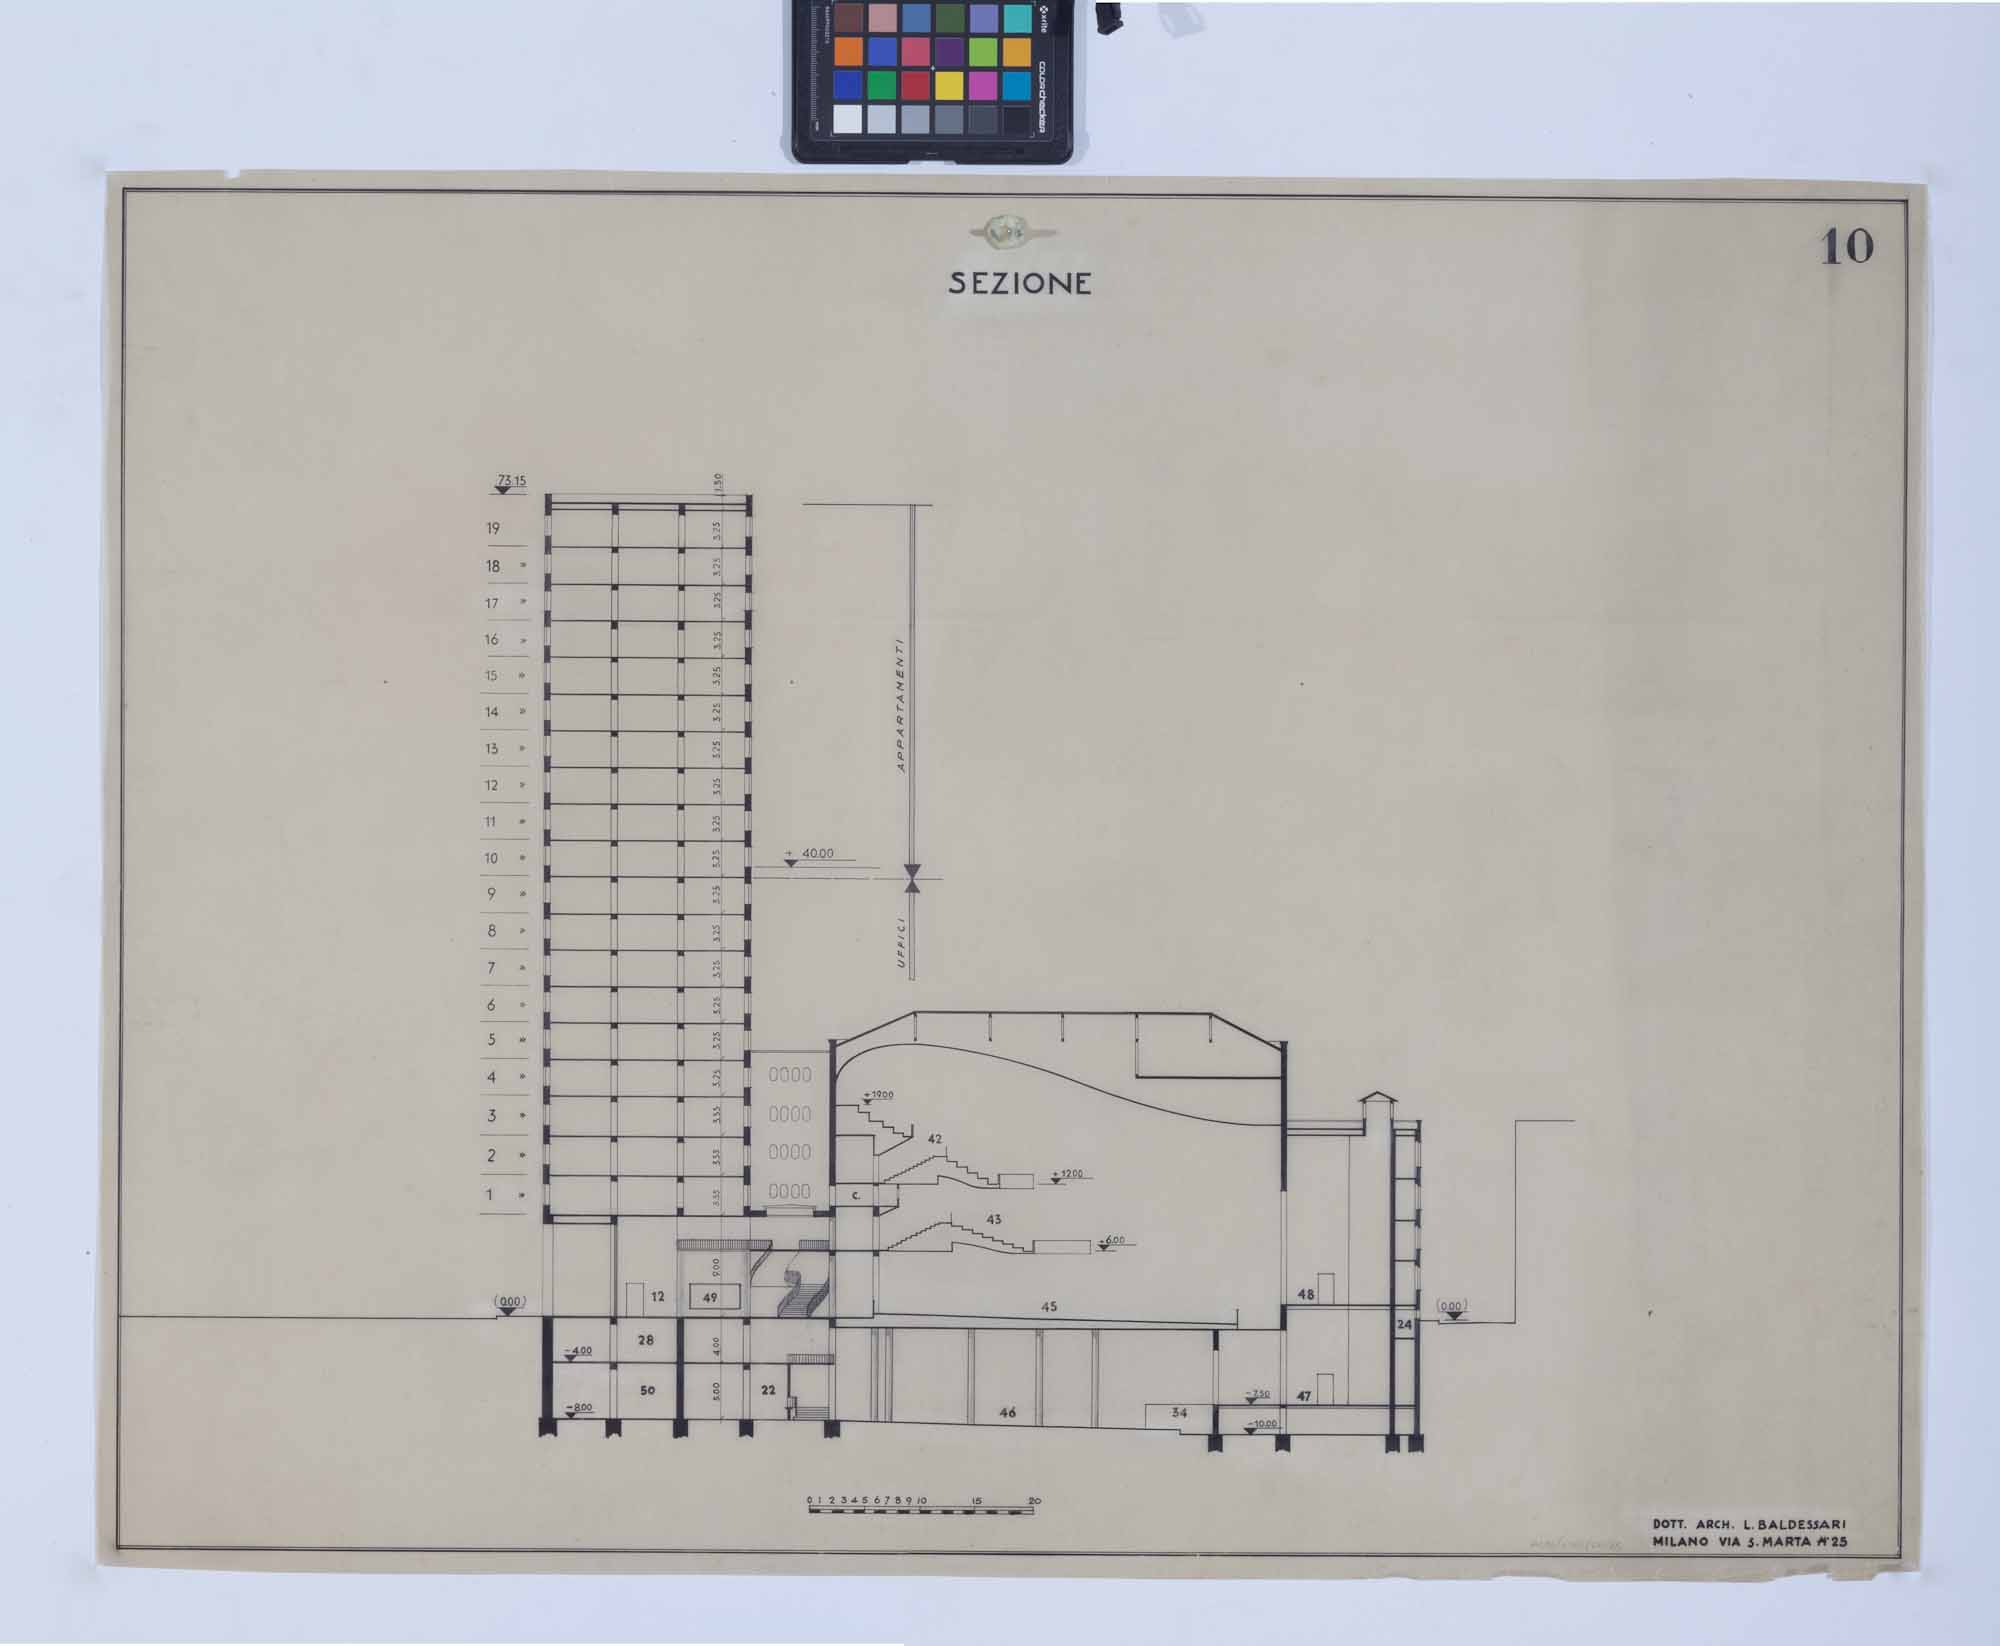 x-rite
colorchecker
10
SEZIONE
73.15
1.50
19
3.25
18 "
3.25
17 "
3.25
16 "
3.25
15 "
3.25
14 "
3.25
13 "
3.25
12 "
3.25
11 "
3.25
10 "
3.25
9 "
3.25
8 "
3.25
7 "
3.25
6 "
3.25
5 "
3.25
4 "
3.25
3 "
3.55
2 "
3.55
1 "
3.55
APPARTAMENTI
+ 40.00
UFFICI
+19.00
42
+12.00
C.
43
+6.00
9.00
12
49
(0.00)
45
48
(0.00)
24
28
4.00
-4.00
50
5.00
22
-8.00
46
34
-7.50
47
-10.00
0 1 2 3 4 5 6 7 8 9 10 15 20
DOTT. ARCH. L. BALDESSARI
MILANO VIA S. MARTA N° 25